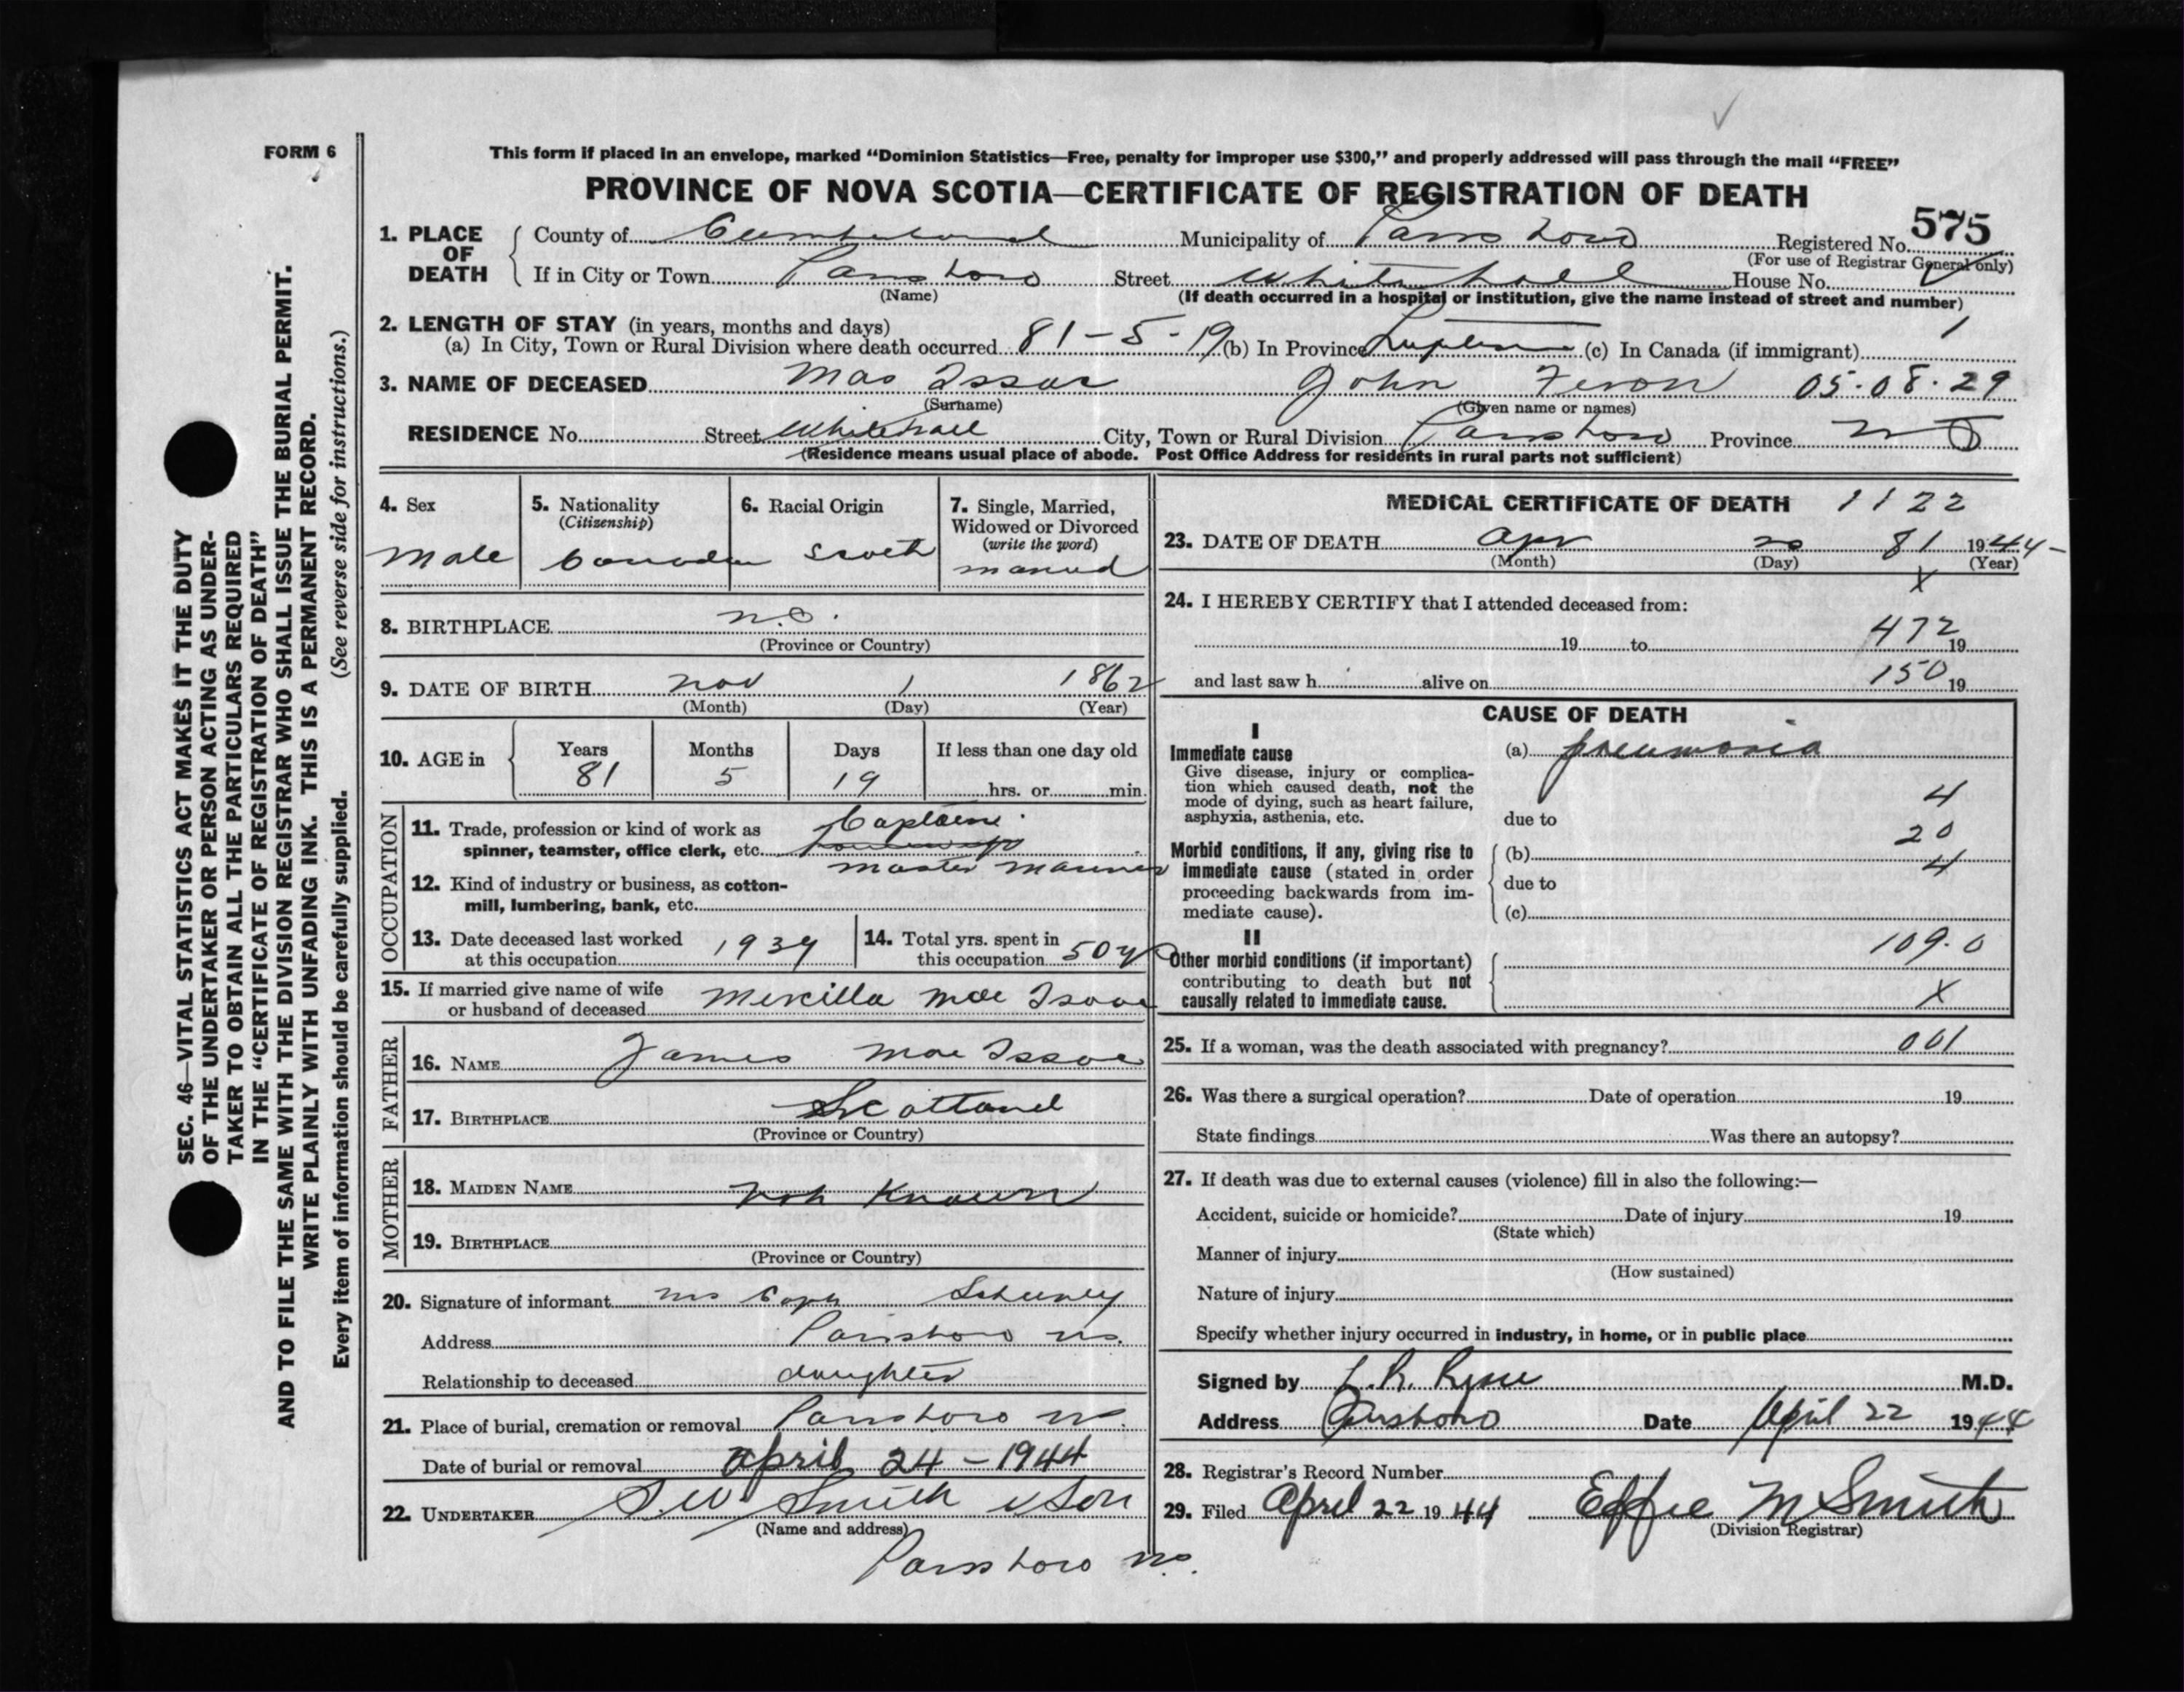 FORM 6
This form if placed in an envelope, marked “Dominion Statistics—Free, penalty for improper use $300,” and properly addressed will pass through the mail “FREE”
PROVINCE OF NOVA SCOTIA—CERTIFICATE OF REGISTRATION OF DEATH
575
1. PLACE OF DEATH
County of Cumberland Municipality of Parrsboro Registered No.
(For use of Registrar General only)
If in City or Town Parrsboro Street Whitehall House No.
(Name) (If death occurred in a hospital or institution, give the name instead of street and number)
2. LENGTH OF STAY (in years, months and days) 1
(a) In City, Town or Rural Division where death occurred 81-5-19 (b) In Province Lifetime (c) In Canada (if immigrant)
3. NAME OF DECEASED Mac Issac John 05-08-29
(Surname) (Given name or names)
RESIDENCE No. Street Whitehall City, Town or Rural Division Parrsboro Province NS
(Residence means usual place of abode. Post Office Address for residents in rural parts not sufficient)
4. Sex
Male
5. Nationality
(Citizenship)
Canadian
6. Racial Origin
Scotch
7. Single, Married,
Widowed or Divorced
(write the word)
married
8. BIRTHPLACE N.S.
(Province or Country)
9. DATE OF BIRTH Nov 1 1862
(Month) (Day) (Year)
10. AGE in
Years Months Days If less than one day old
81 5 19 hrs. or min.
OCCUPATION
11. Trade, profession or kind of work as Captain
spinner, teamster, office clerk, etc.
master mariner
12. Kind of industry or business, as cotton-
mill, lumbering, bank, etc.
13. Date deceased last worked
at this occupation 1934
14. Total yrs. spent in
this occupation 50 y
15. If married give name of wife
or husband of deceased Mercilla Mac Isaac
FATHER
16. NAME James Mac Issac
17. BIRTHPLACE Scotland
(Province or Country)
MOTHER
18. MAIDEN NAME not known
19. BIRTHPLACE
(Province or Country)
20. Signature of informant Mrs Capt
Address Parrsboro NS.
Relationship to deceased daughter
21. Place of burial, cremation or removal Parrsboro NS.
Date of burial or removal April 24 - 1944
22. UNDERTAKER S.W. Smith & Son
(Name and address)
Parrsboro NS.
MEDICAL CERTIFICATE OF DEATH 1122
23. DATE OF DEATH Apr 20 81 1944-
(Month) (Day) (Year)
X
24. I HEREBY CERTIFY that I attended deceased from:
472
19 to 19
and last saw h alive on 150 19
CAUSE OF DEATH
I
Immediate cause
Give disease, injury or complica-
tion which caused death, not the
mode of dying, such as heart failure,
asphyxia, asthenia, etc.
(a) pneumonia
4
due to
20
Morbid conditions, if any, giving rise to
immediate cause (stated in order
proceeding backwards from im-
mediate cause).
(b)
4
due to
(c)
II
Other morbid conditions (if important)
contributing to death but not
causally related to immediate cause.
109.0
X
25. If a woman, was the death associated with pregnancy? 001
26. Was there a surgical operation? Date of operation 19
State findings Was there an autopsy?
27. If death was due to external causes (violence) fill in also the following:—
Accident, suicide or homicide? Date of injury 19
(State which)
Manner of injury
(How sustained)
Nature of injury
Specify whether injury occurred in industry, in home, or in public place
Signed by M.D.
Address Parrsboro Date April 22 1944
28. Registrar's Record Number
29. Filed April 22 1944 Effie M Smith
(Division Registrar)
SEC. 46—VITAL STATISTICS ACT MAKES IT THE DUTY
OF THE UNDERTAKER OR PERSON ACTING AS UNDER-
TAKER TO OBTAIN ALL THE PARTICULARS REQUIRED
IN THE “CERTIFICATE OF REGISTRATION OF DEATH”
AND TO FILE THE SAME WITH THE DIVISION REGISTRAR WHO SHALL ISSUE THE BURIAL PERMIT.
WRITE PLAINLY WITH UNFADING INK. THIS IS A PERMANENT RECORD.
Every item of information should be carefully supplied. (See reverse side for instructions.)